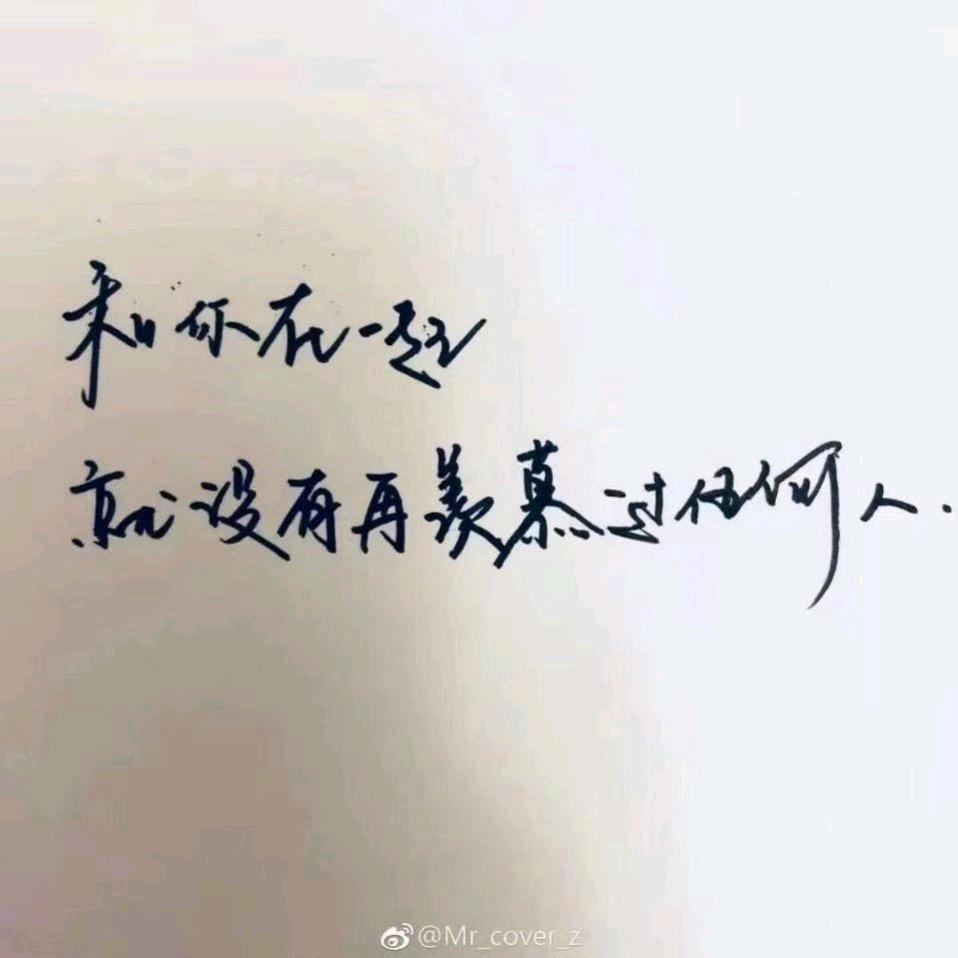 和你在一起
就没有再羡慕过任何人.
@Mr_cover_z